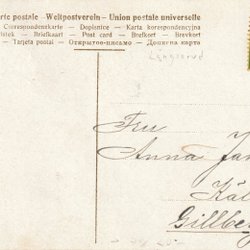 rte postale –Weltpostverein– Union postale universelle
Correspondenzkarte – Dopisnice – Karta korespondencyjna
listek – Briefkaart – Post card – Brefkort – Brevkort
– Tarjeta postal – Открытое письмо – Дописна карта
Fru
Anna Jan
Käl
Gillbe